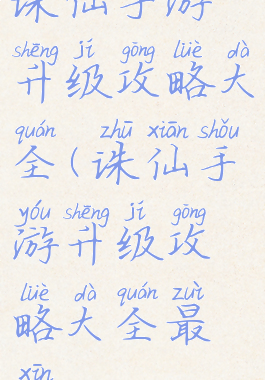 诛仙手游
shēng jí gōng lüè dà
升级攻略大
quán zhū xiān shǒu
全(诛仙手
yóu shēng jí gōng
游升级攻
lüè dà quán zuì
略大全最
xīn